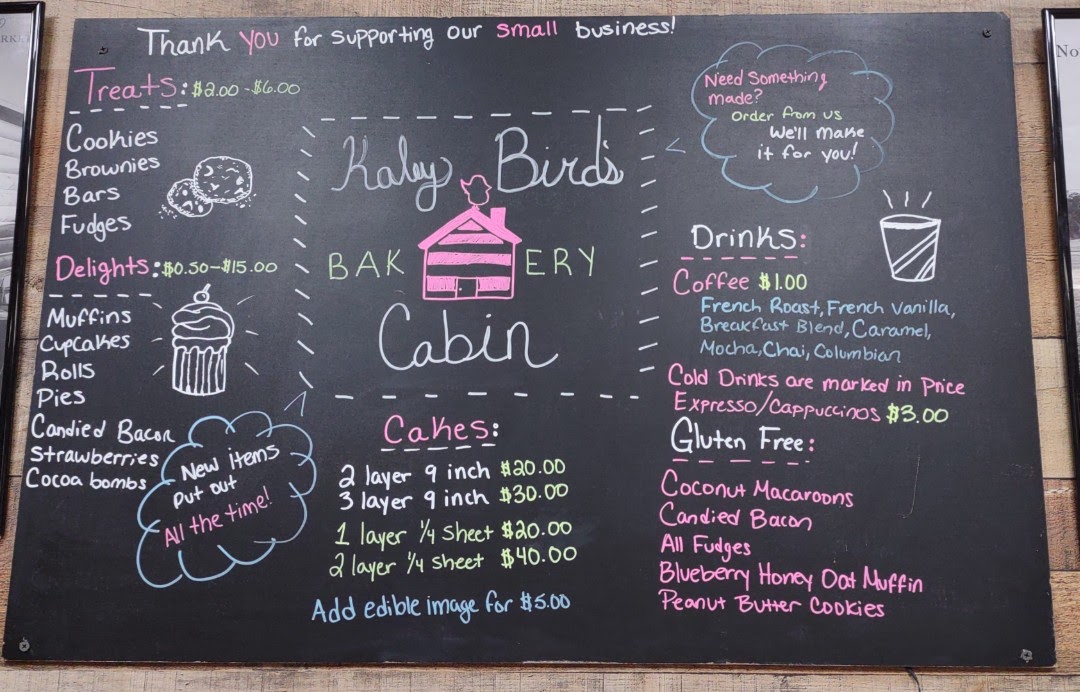 Thank you for supporting our small business!
Treats: $2.00 - $6.00
Cookies
Brownies
Bars
Fudges
Delights: $0.50 - $15.00
Muffins
Cupcakes
Rolls
Pies
Candied Bacon
Strawberries
Cocoa bombs
New items
put out
All the time!
Kaley Bird's
BAKERY
Cabin
Cakes:
2 layer 9 inch $20.00
3 layer 9 inch $30.00
1 layer 1/4 sheet $20.00
2 layer 1/4 sheet $40.00
Add edible image for $5.00
Need Something
made?
Order from us
We'll make
it for you!
Drinks:
Coffee $1.00
French Roast, French Vanilla,
Breakfast Blend, Caramel,
Mocha, Chai, Columbian
Cold Drinks are marked in Price
Expresso/Cappuccinos $3.00
Gluten Free:
Coconut Macaroons
Candied Bacon
All Fudges
Blueberry Honey Oat Muffin
Peanut Butter Cookies